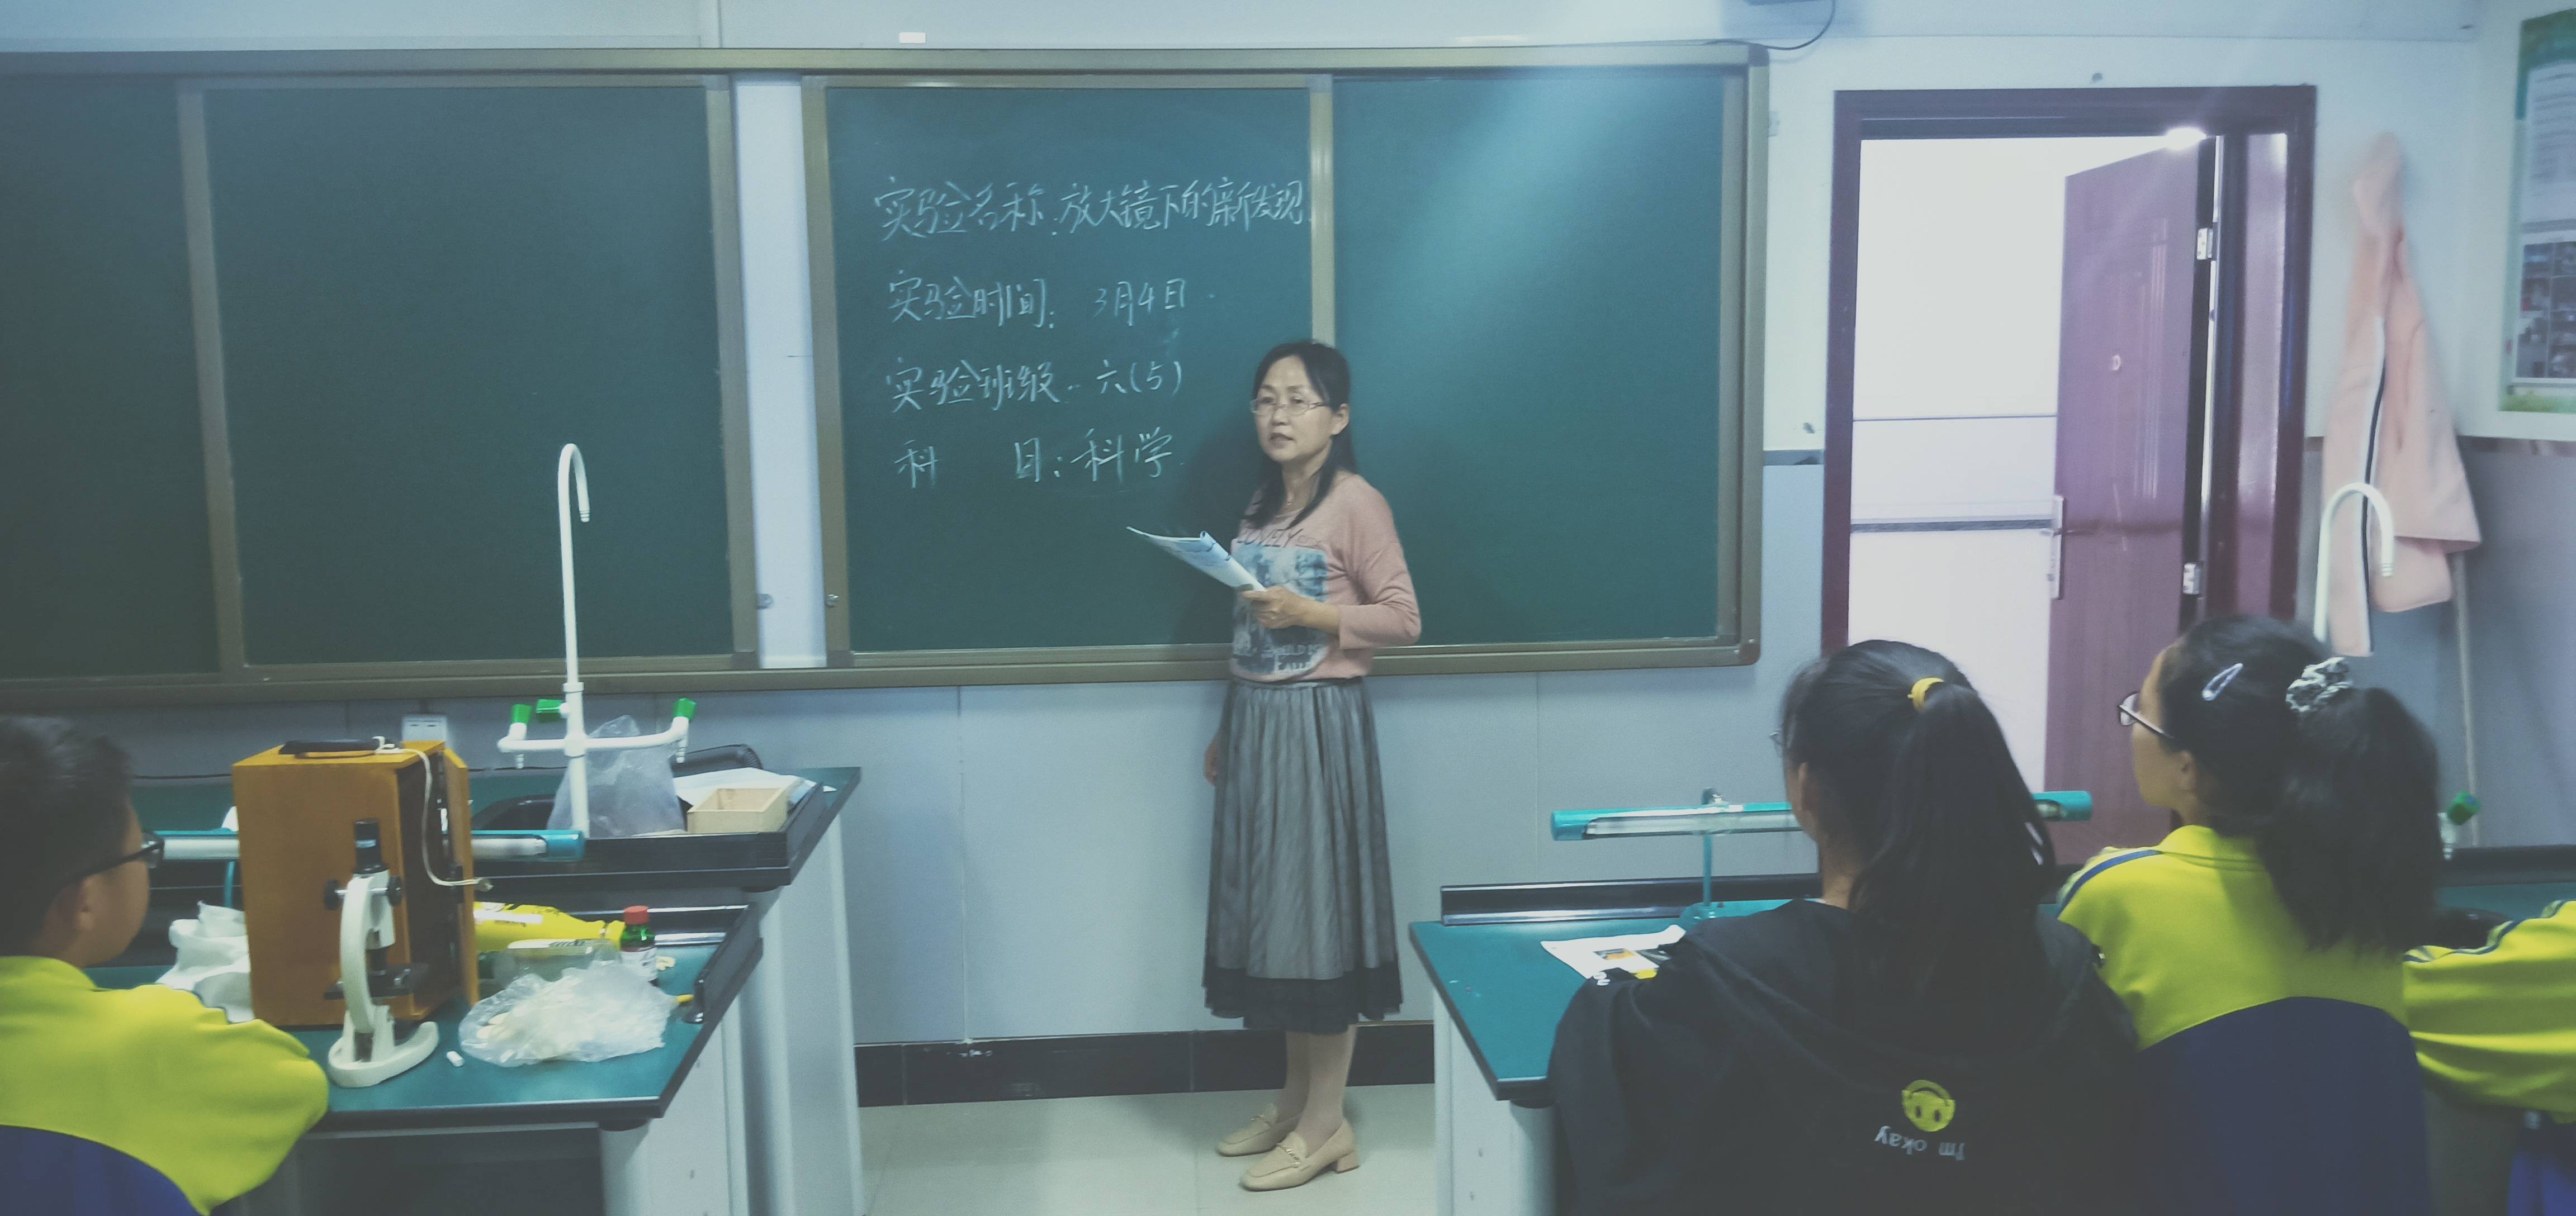 实验名称:放大镜下的新发现
实验时间: 3月4日
实验班级: 六(5)
科 目:科学
LOVELY
I'm okay